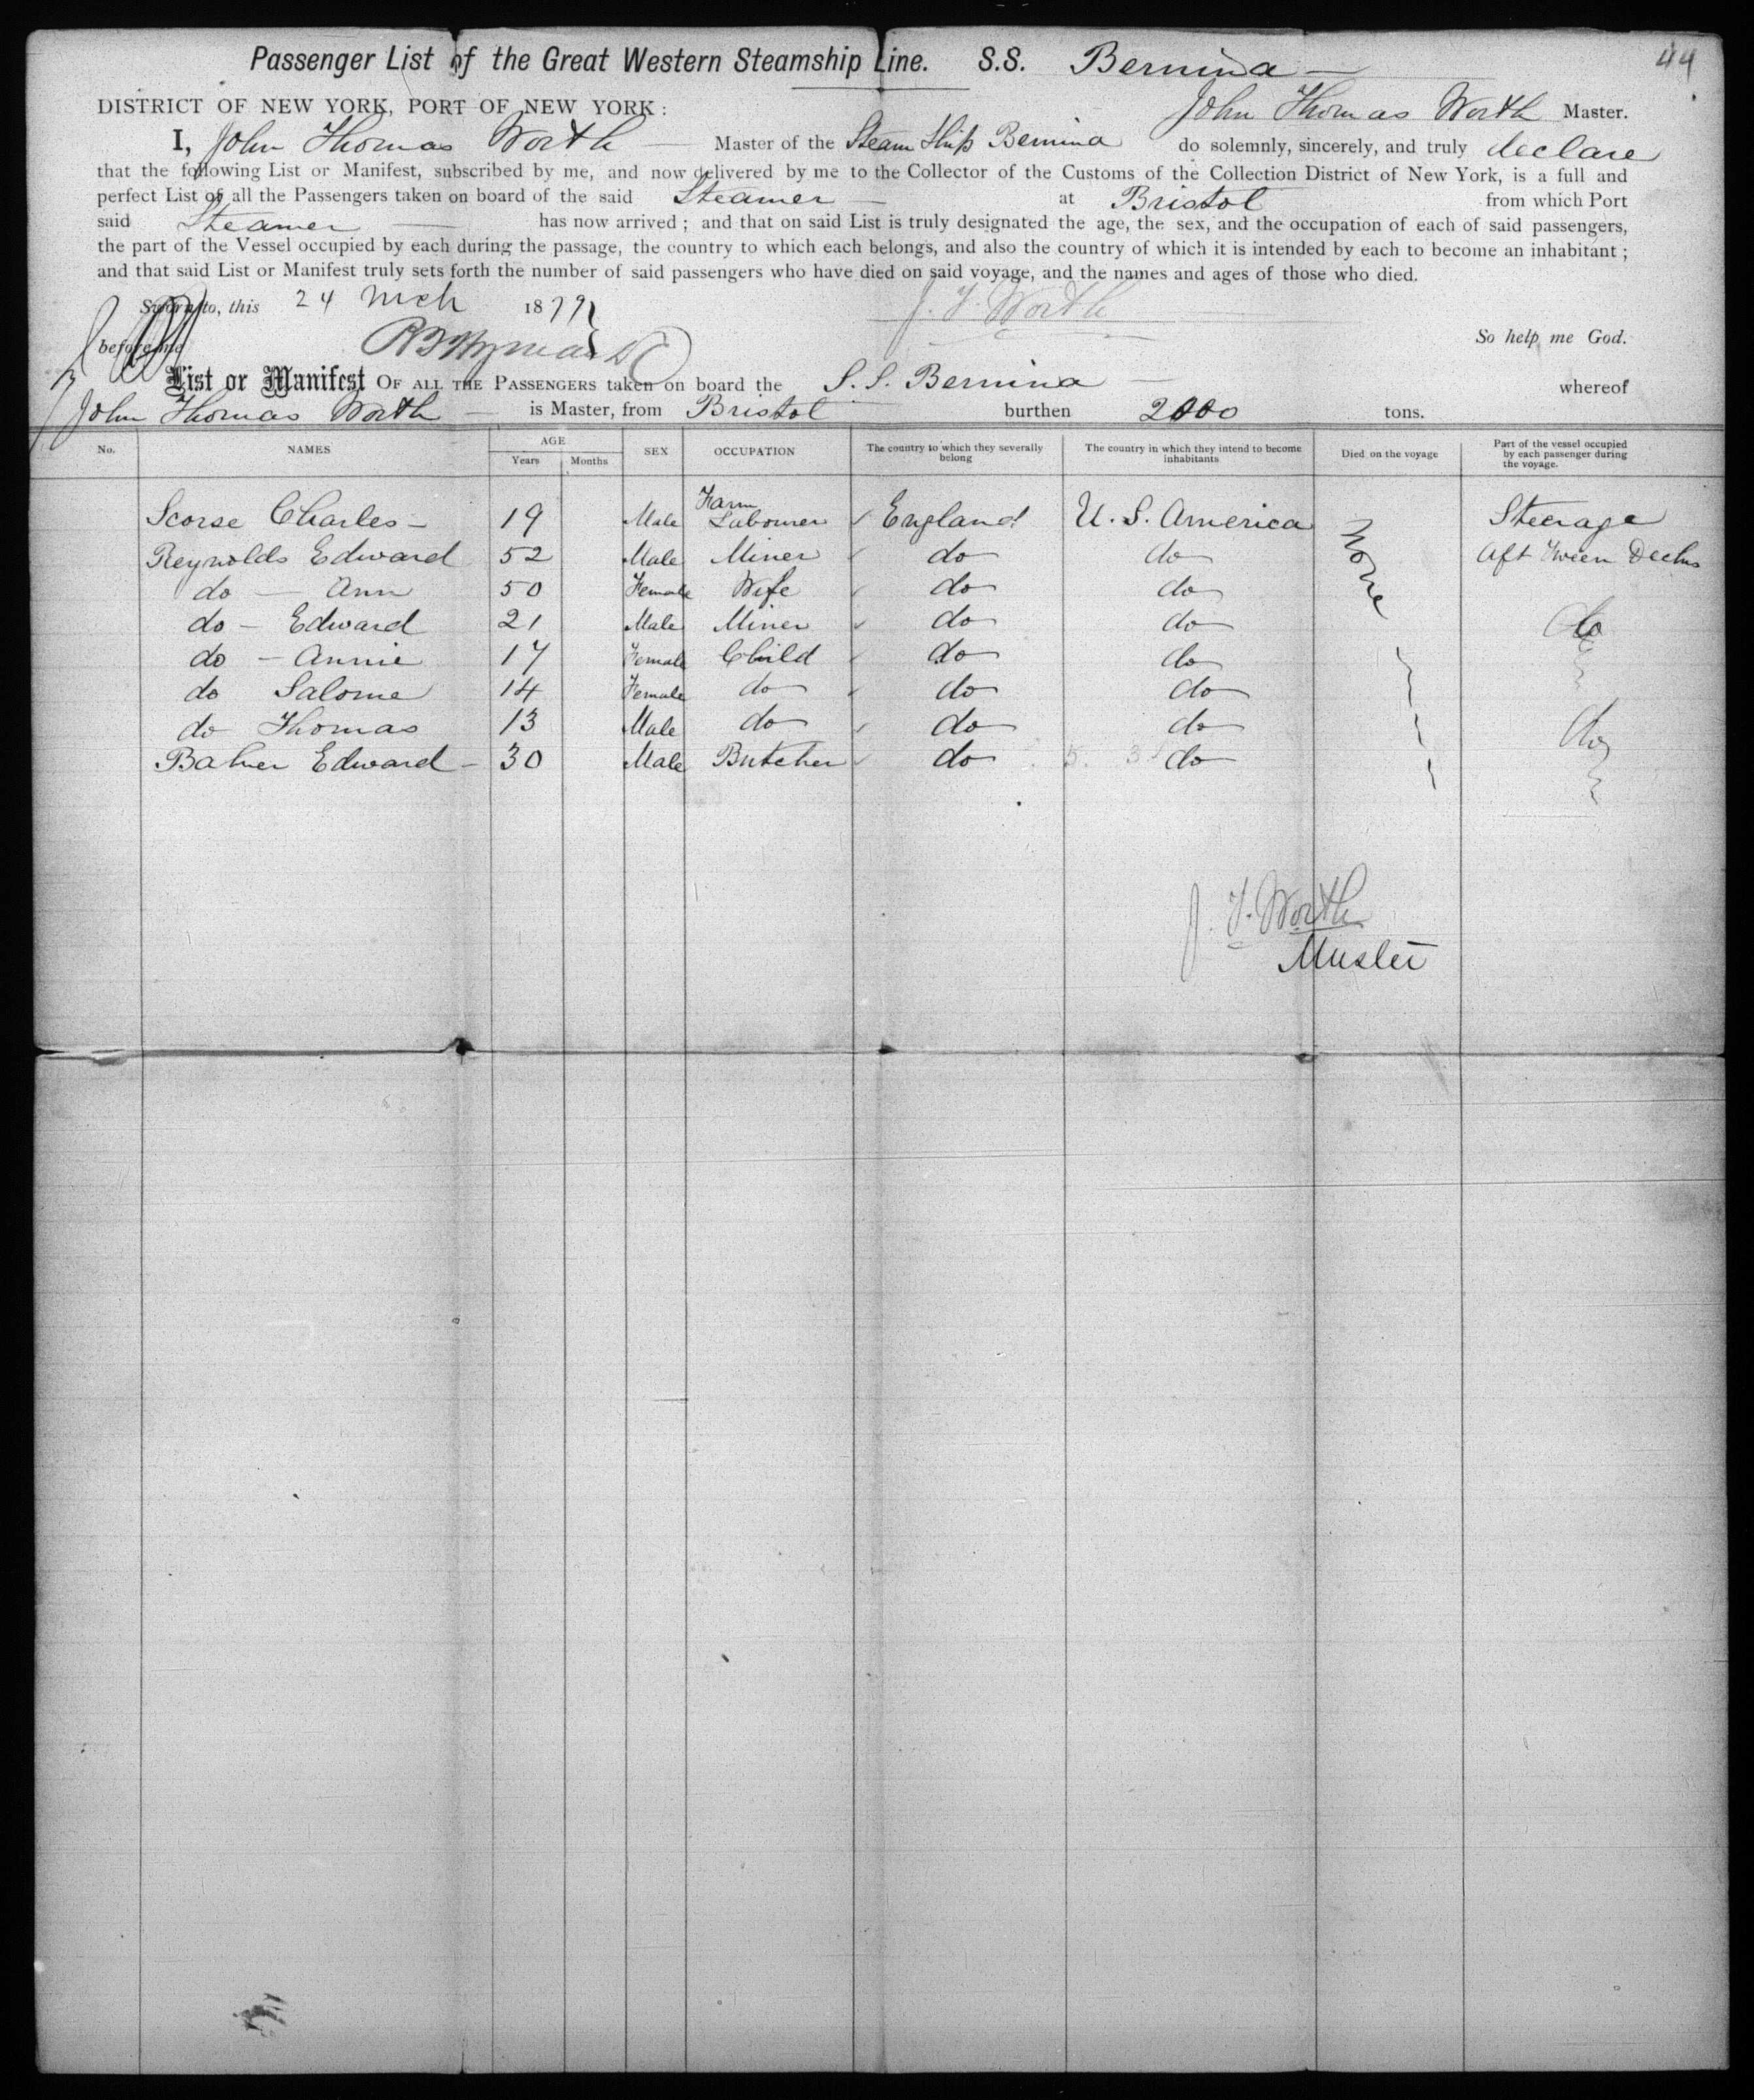 Passenger List of the Great Western Steamship Line. S.S. Bernina
44
DISTRICT OF NEW YORK, PORT OF NEW YORK: John Thomas Worth Master.
I, John Thomas Worth Master of the Steam Ship Bernina do solemnly, sincerely, and truly declare
that the following List or Manifest, subscribed by me, and now delivered by me to the Collector of the Customs of the Collection District of New York, is a full and
perfect List of all the Passengers taken on board of the said Steamer at Bristol from which Port
said Steamer has now arrived; and that on said List is truly designated the age, the sex, and the occupation of each of said passengers,
the part of the Vessel occupied by each during the passage, the country to which each belongs, and also the country of which it is intended by each to become an inhabitant;
and that said List or Manifest truly sets forth the number of said passengers who have died on said voyage, and the names and ages of those who died.
Sworn to, this 24 Mch 1879 J. T. Worth
before me So help me God.
List or Manifest OF ALL THE PASSENGERS taken on board the S. S. Bernina whereof
John Thomas Worth is Master, from Bristol burthen 2000 tons.
No. NAMES AGE Years Months SEX OCCUPATION The country to which they severally belong The country in which they intend to become inhabitants Died on the voyage Part of the vessel occupied by each passenger during the voyage.
Scorse Charles 19 Male Farm Labourer England U. S. America None Steerage
Reynolds Edward 52 Male Miner do do Aft Tween Decks
do Ann 50 Female Wife do do
do Edward 21 Male Miner do do do
do Annie 17 Female Child do do
do Salome 14 Female do do do
do Thomas 13 Male do do do do
Baker Edward 30 Male Butcher do do
J. T. Worth
Master